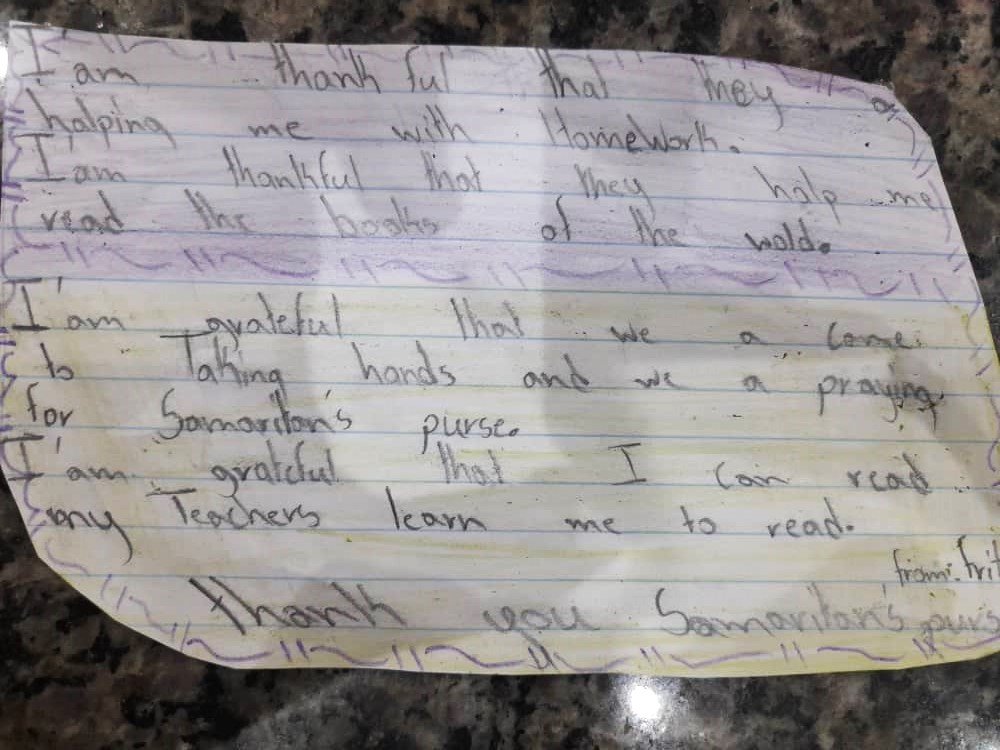 I am thankful that they a
helping me with HomeWork.
I am thankful that they help me
read the books of the wold.
I'am grateful that we a come
to Taking hands and we a praying
for Samaritan's purse.
I'am grateful that I can read
my Teachers learn me to read.
from:
thank you Samaritan's purs